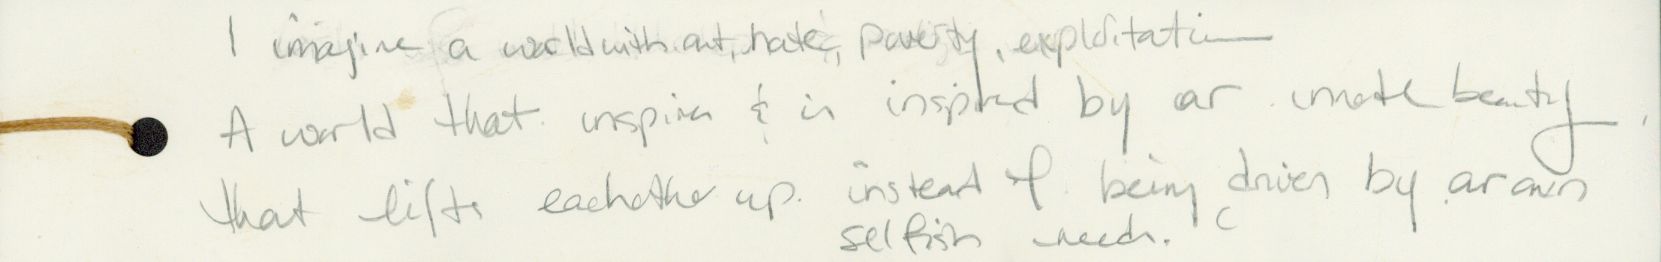 I imagine a world with out, hate, poverty, exploitation
A world that inspires & is inspired by ar innate beauty,
that lifts eachother up. instead of being driven by ar own
selfish needs.